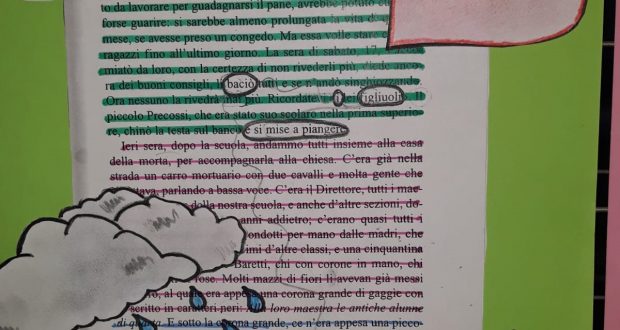 to da lavorare per guadagnarsi il pane, avrebbe potuto
forse guarire: si sarebbe almeno prolungata la vita di
mese, se avesse preso un congedo. Ma essa volle stare
ragazzi fino all'ultimo giorno. La sera di sabato, 17,
miatò da loro, con la certezza di non rivederli più, diede anco-
ra dei buoni consigli, li baciò tutti e se n'andò singhiozzando.
Ora nessuno la rivedrà mai più. Ricordatevi di lei figliuoli. Il
piccolo Precossi, che era stato suo scolaro nella prima superio-
re, chinò la testa sul banco e si mise a piangere.
Ieri sera, dopo la scuola, andammo tutti insieme alla casa
della morta, per accompagnarla alla chiesa. C'era già nella
strada un carro mortuario con due cavalli e molta gente che
tava, parlando a bassa voce. C'era il Direttore, tutti i mae-
della nostra scuola, e anche d'altre sezioni, do-
anni addietro; c'erano quasi tutti i
ondotti per mano dalle madri, che
imi d'altre classi, e una cinquantina
Baretti, chi con corone in mano, chi
rose. Molti mazzi di fiori li avevan già messi
al quale era appesa una corona grande di gaggìe con
scritto in caratteri neri: Alla loro maestra le antiche alunne
di quarta. E sotto la corona grande, ce n'era appesa una picco-